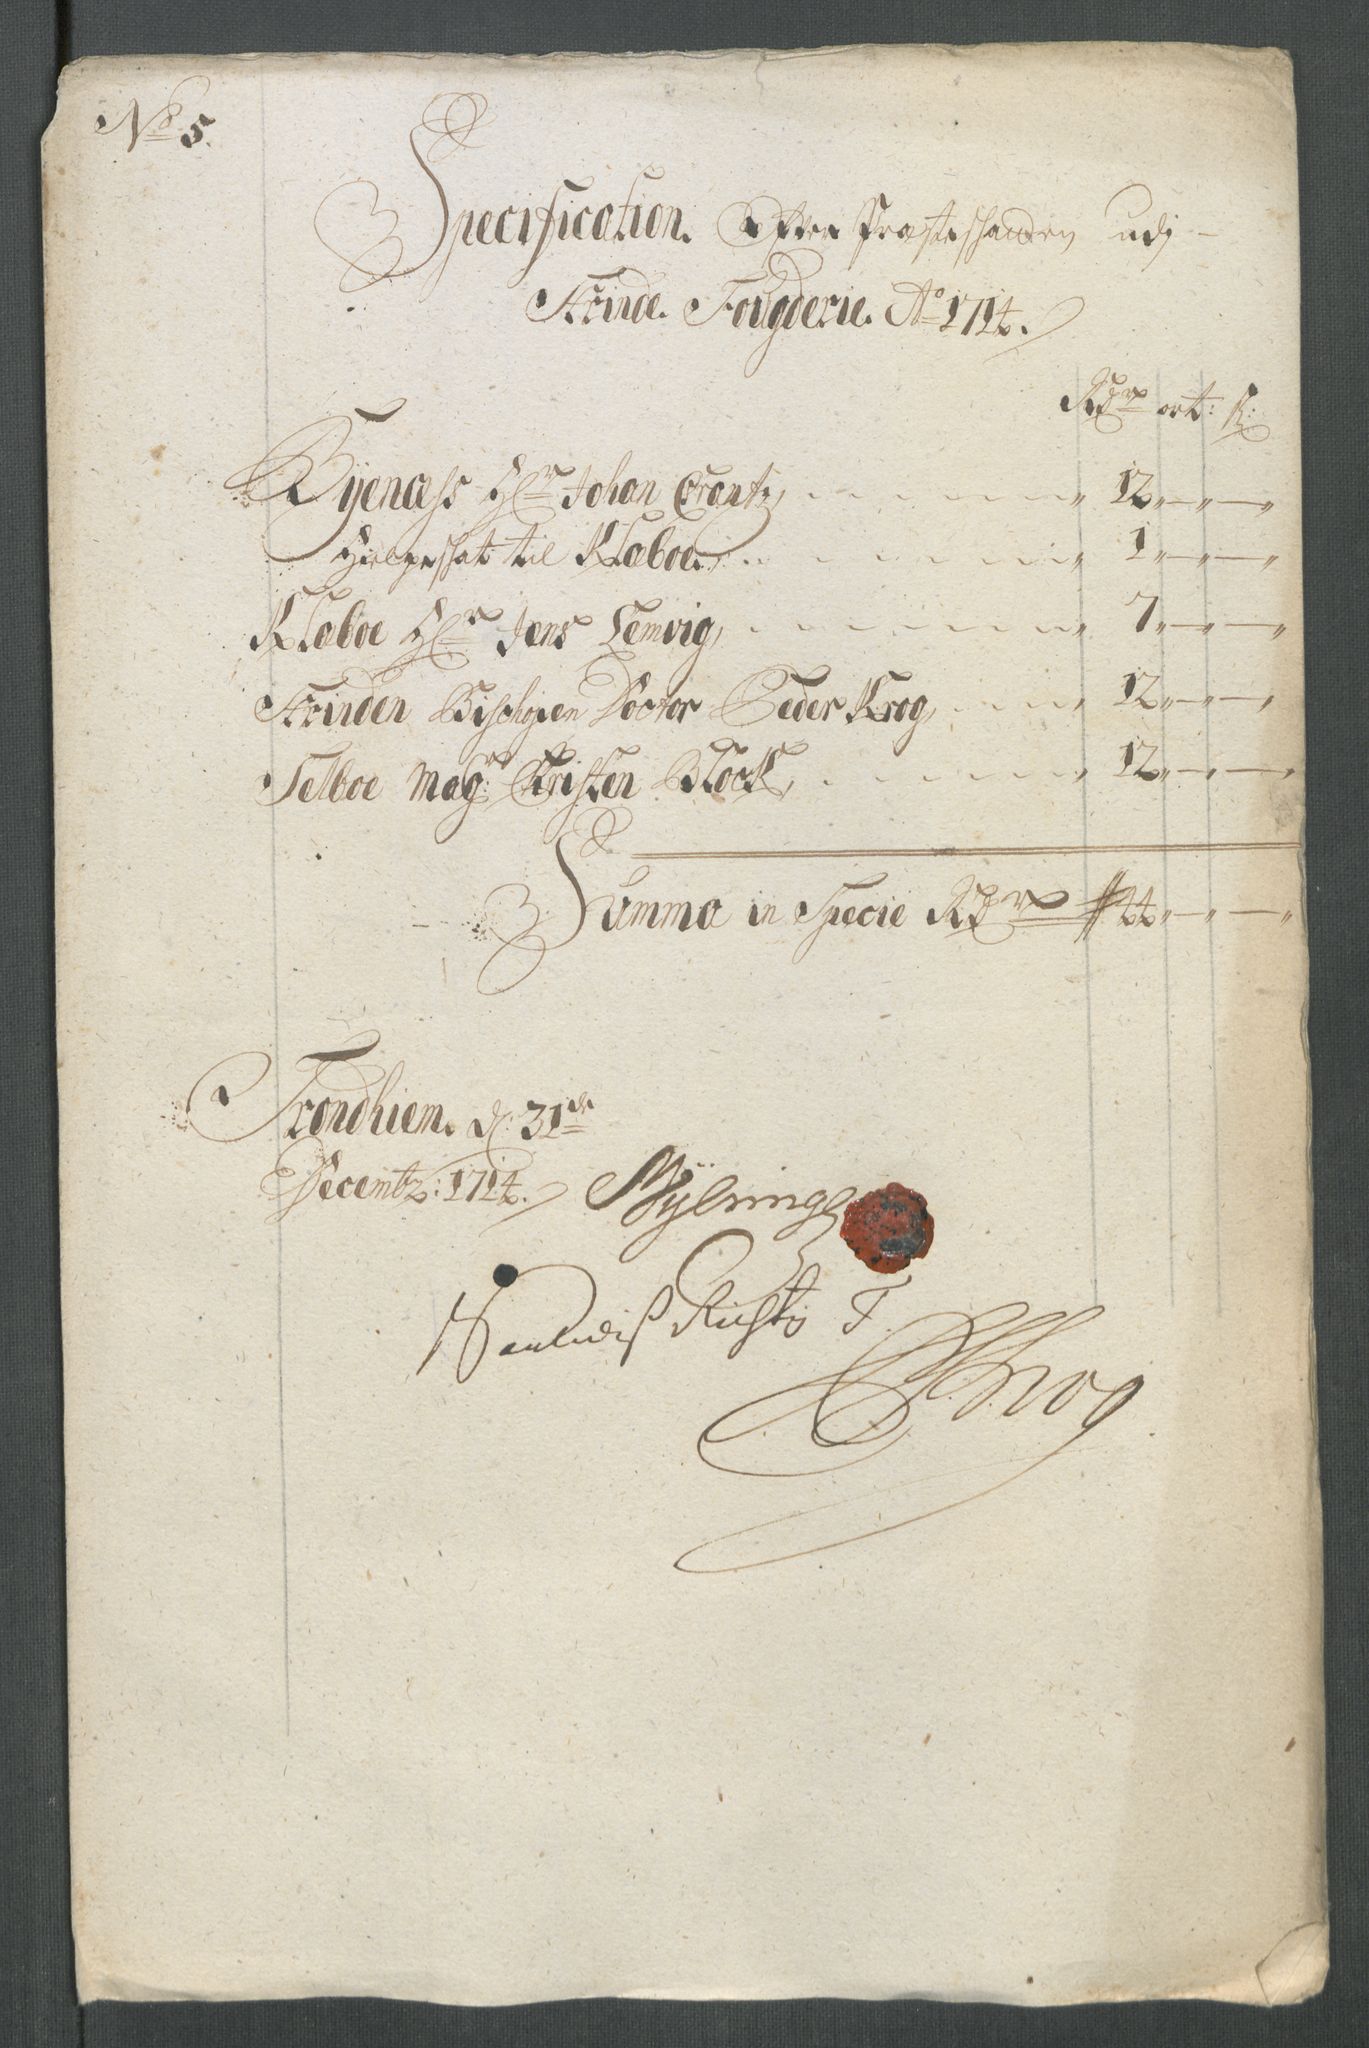 No 5.
Specification. Ofver Præsteskatten udj
Strinde. Fougderie. Ao 1714.
Rdr ort: s:
Byenæss Hr Johan Crantz, 12 " — " — "
Hielpeskat til Klæboe. 1 " — " — "
Klæboe Hr Jens Lemvig, 7 " — " — "
Strinden Bischopen Doctor Peder Krog, 12 " — " — "
Selboe Magr: Christen Block, 12 " — " — "
Summa in Specie Rdr 44 " — " — "
Trondhiem. d: 31de
Decembr: 1714.
Krog